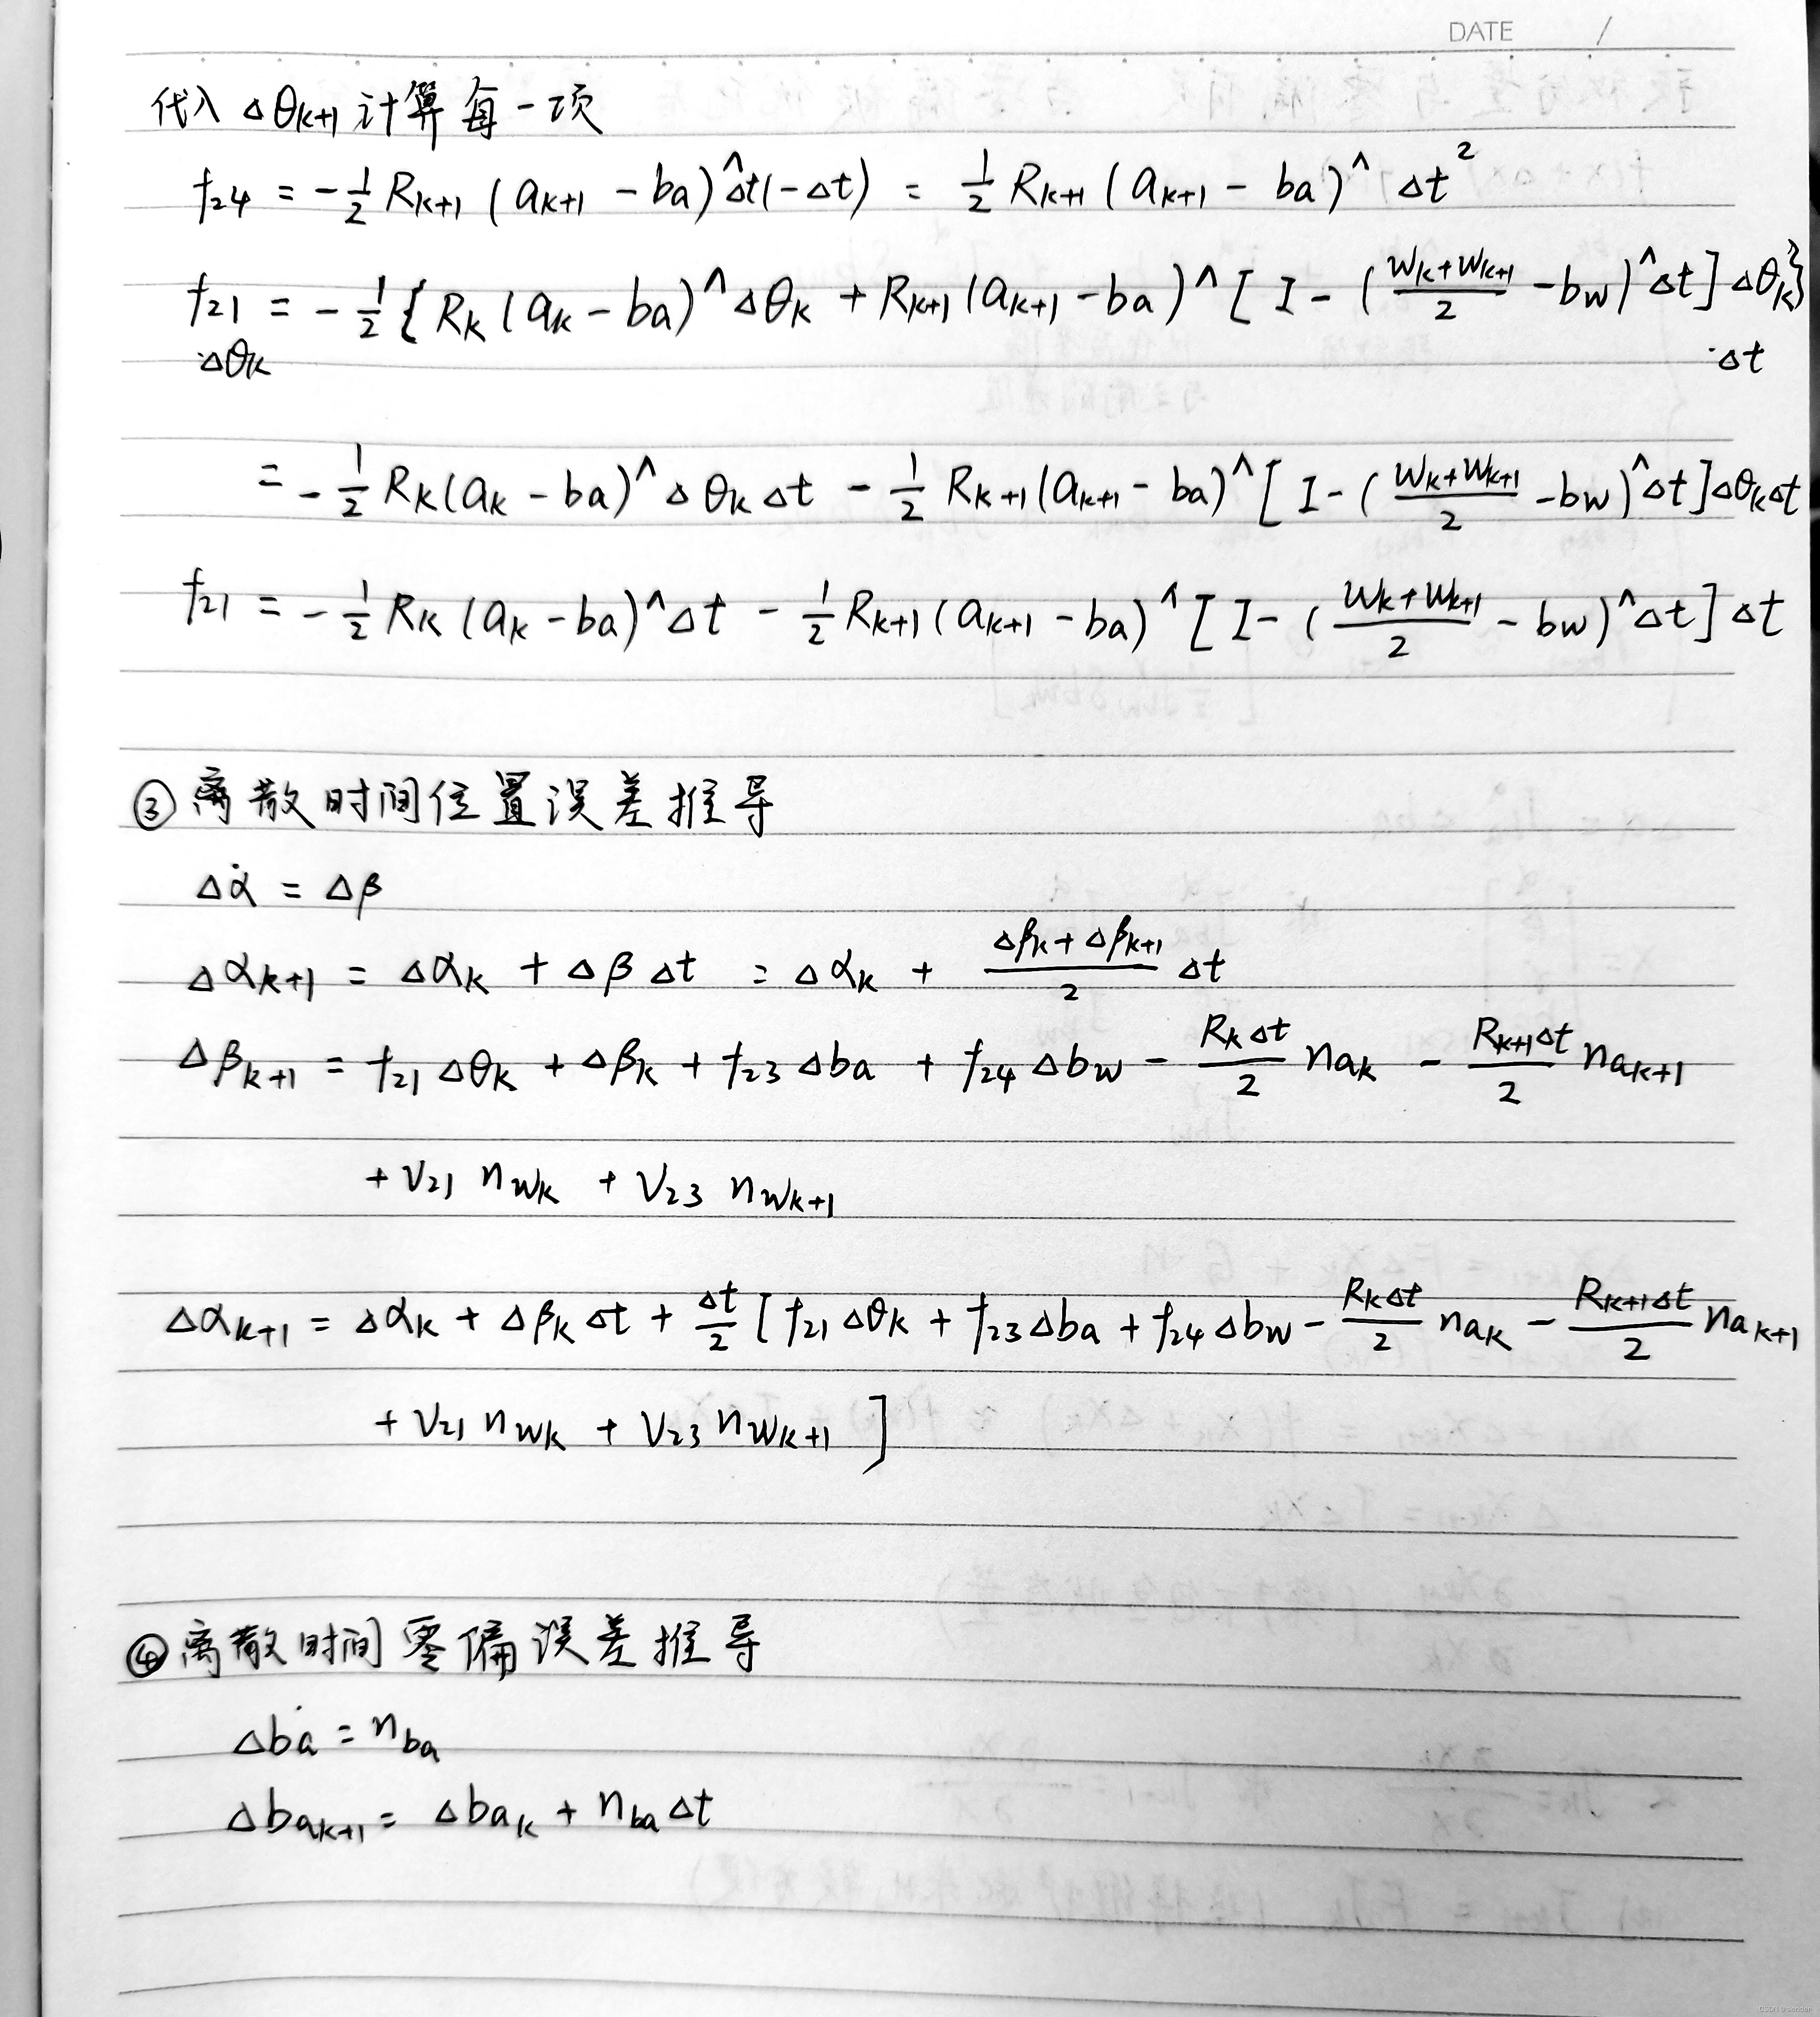 DATE /
代入 Δθk+1 计算每一项
f24 = -1/2 Rk+1 (ak+1 - ba)^Δt(-Δt) = 1/2 Rk+1 (ak+1 - ba)^ Δt²
f21 = -1/2 { Rk (ak - ba)^ Δθk + Rk+1 (ak+1 - ba)^ [ I - ( (wk+wk+1)/2 - bw )^Δt ] Δθk }
Δθk ·Δt
= -1/2 Rk (ak - ba)^ Δθk Δt - 1/2 Rk+1 (ak+1 - ba)^ [ I - ( (wk+wk+1)/2 - bw )^Δt ] Δθk Δt
f21 = -1/2 Rk (ak - ba)^Δt - 1/2 Rk+1 (ak+1 - ba)^ [ I - ( (wk+wk+1)/2 - bw )^Δt ] Δt
③ 离散时间位置误差推导
Δα̇ = Δβ
Δαk+1 = Δαk + Δβ Δt = Δαk + (Δβk + Δβk+1)/2 Δt
Δβk+1 = f21 Δθk + Δβk + f23 Δba + f24 Δbw - RkΔt/2 nak - Rk+1Δt/2 nak+1
+ V21 nwk + V23 nwk+1
Δαk+1 = Δαk + Δβk Δt + Δt/2 [ f21 Δθk + f23 Δba + f24 Δbw - RkΔt/2 nak - Rk+1Δt/2 nak+1
+ V21 nwk + V23 nwk+1 ]
④ 离散时间零偏误差推导
Δḃa = nba
Δbak+1 = Δbak + nba Δt